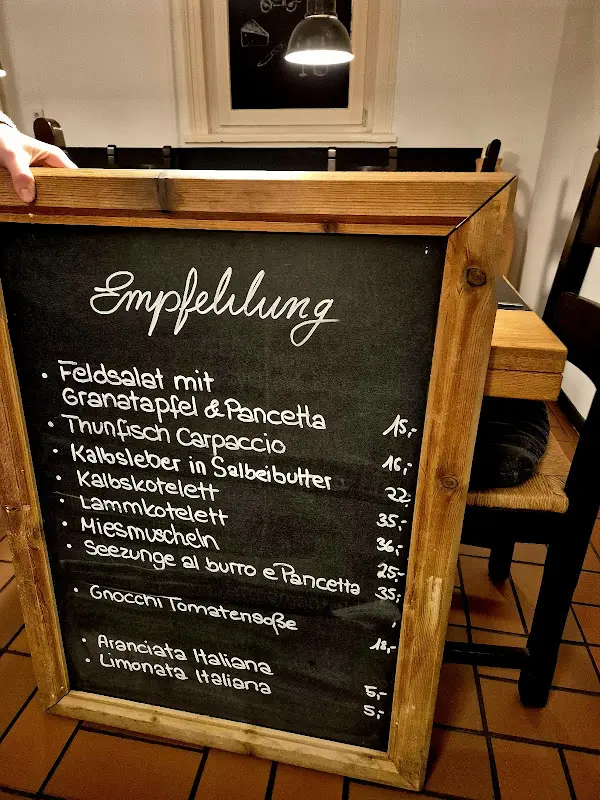 Empfehlung
• Feldsalat mit
Granatapfel & Pancetta 15,-
• Thunfisch Carpaccio 16,-
• Kalbsleber in Salbeibutter 22,-
• Kalbskotelett 35,-
• Lammkotelett 36,-
• Miesmuscheln 25,-
• Seezunge al burro e Pancetta 35,-
• Gnocchi Tomatensoße 18,-
• Aranciata Italiana 5,-
• Limonata Italiana 5,-